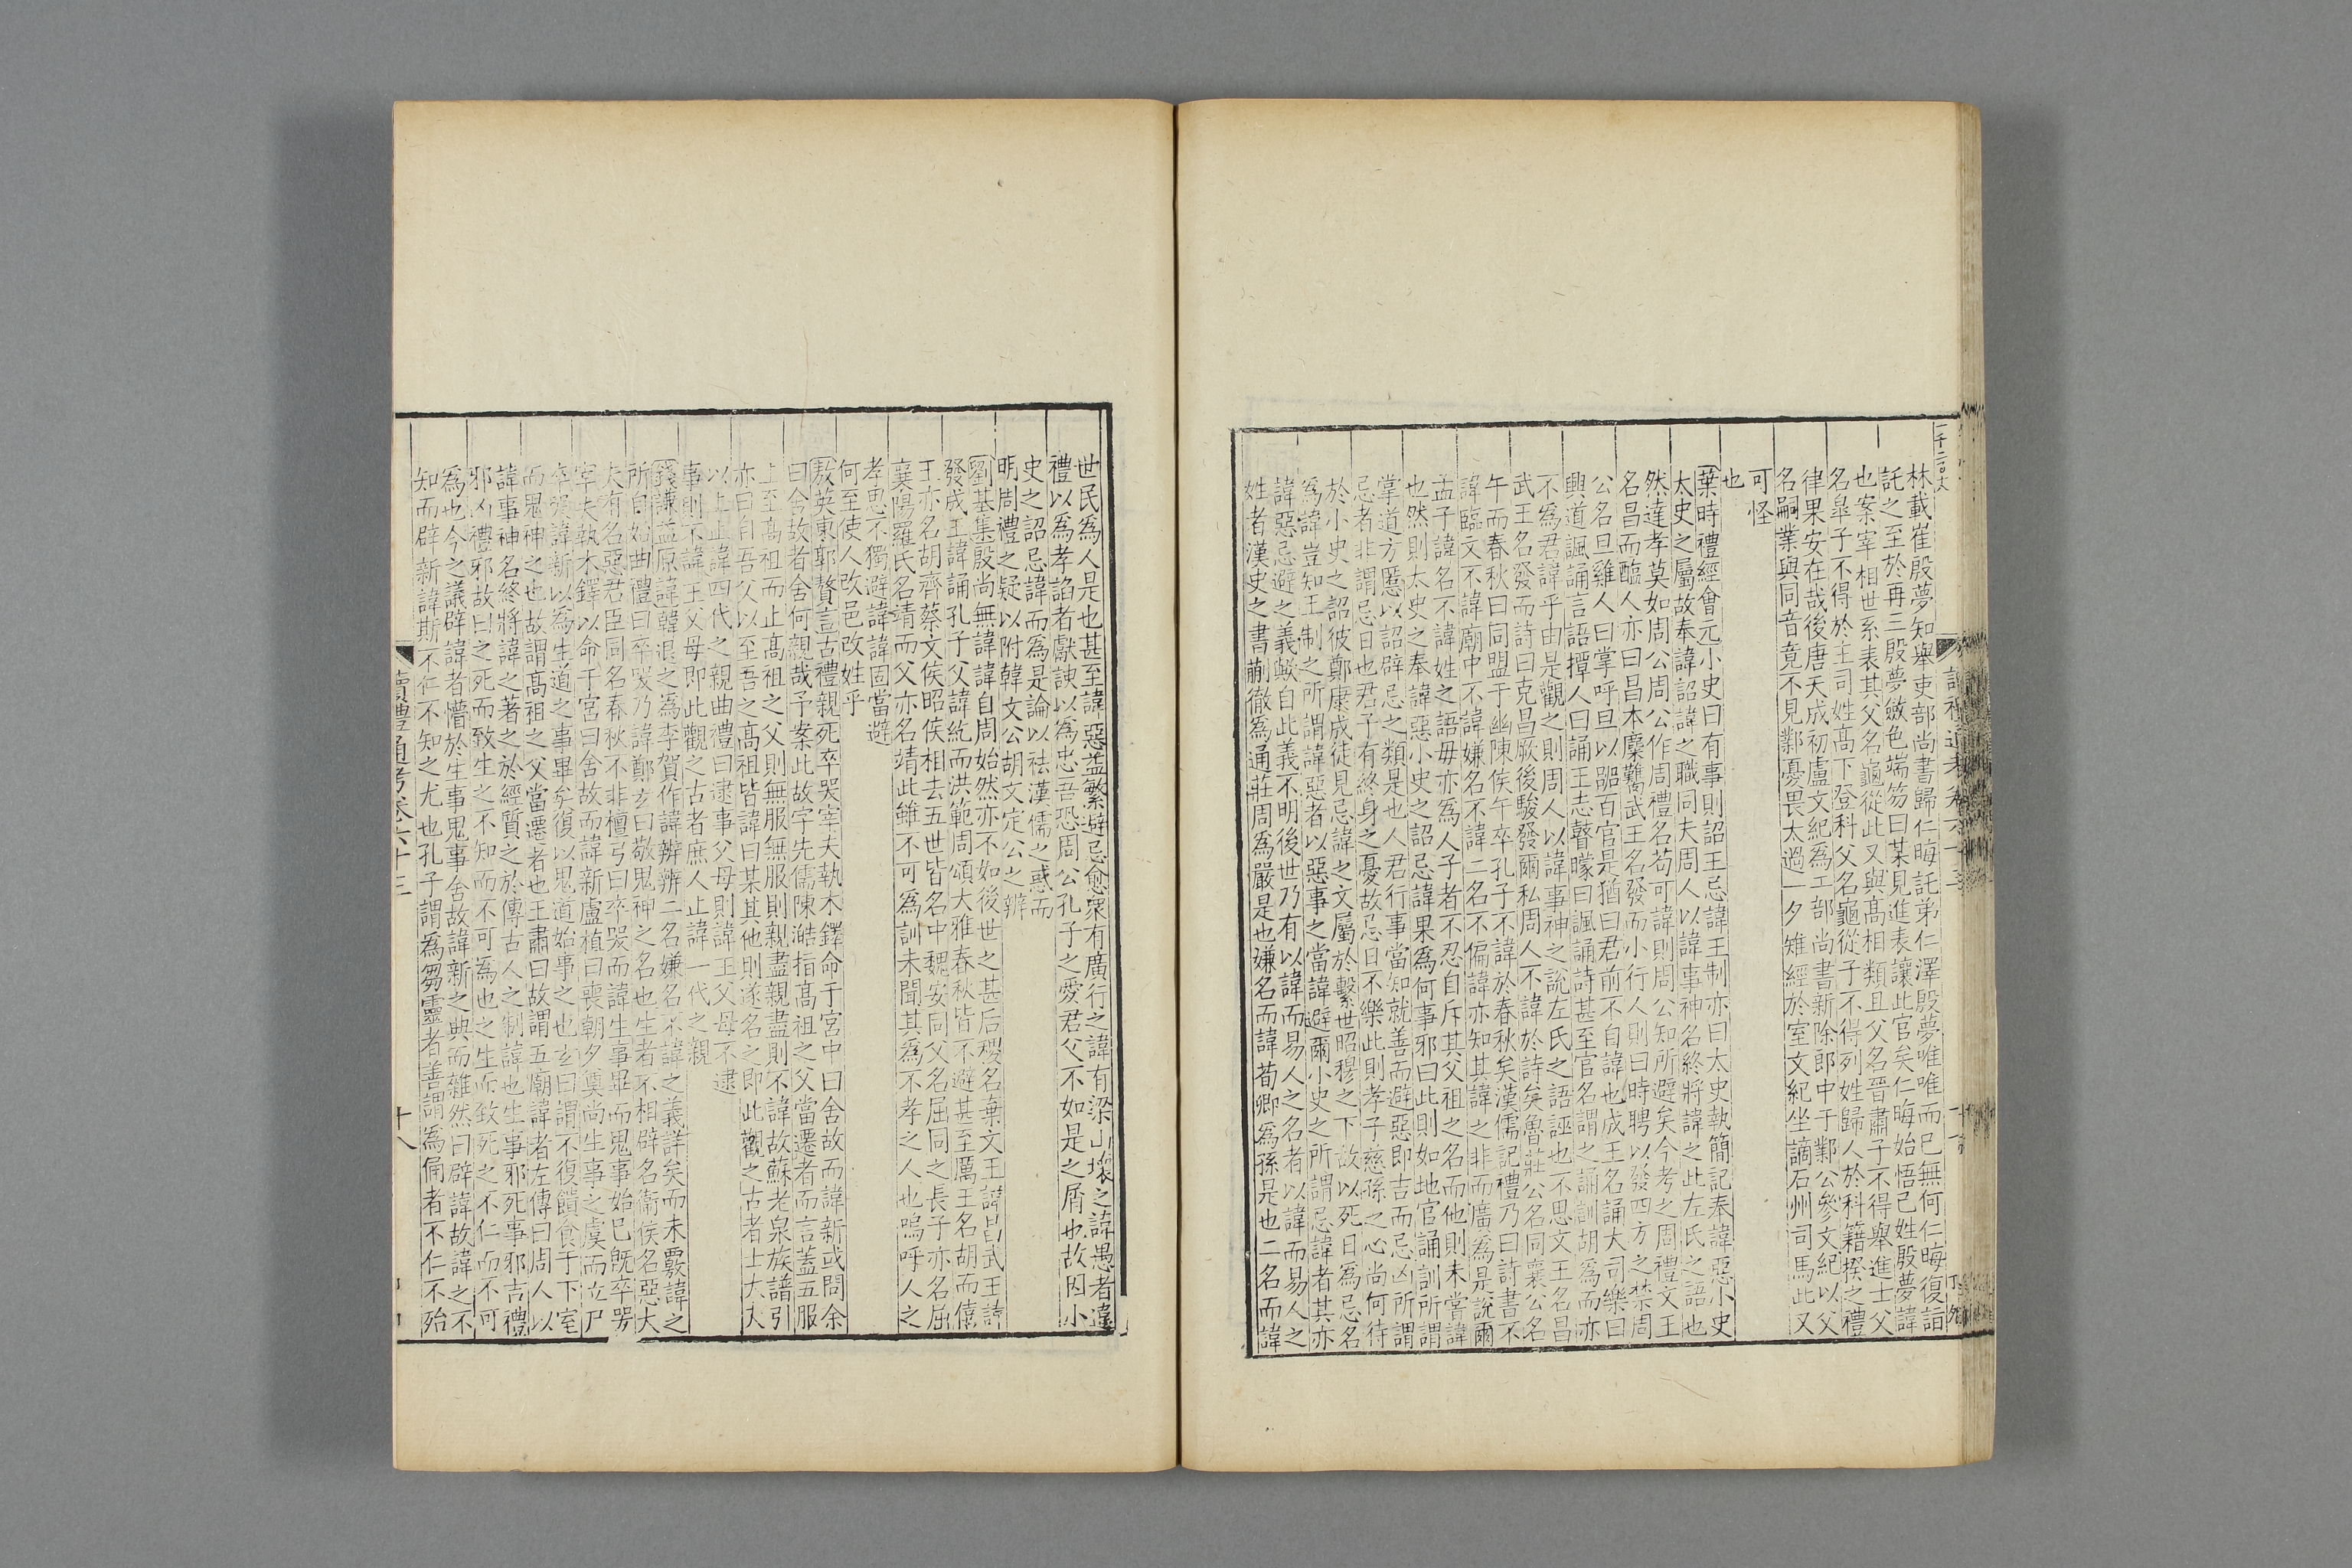 林載崔殷夢知舉吏部尚書歸仁晦託弟仁澤殷夢唯唯而已無何仁晦復詣
託之至於再三殷夢斂色端笏曰某見進表讓此官矣仁晦始悟已姓殷夢諱
也案宰相世系表其父名龜從此又與高相類且父名晉肅子不得舉進士父
名皋子不得於主司姓高下登科父名龜從子不得列姓歸人於科籍揆之禮
律果安在哉後唐天成初盧文紀為工部尚書新除郎中于鄴公參文紀以父
名嗣業與同音竟不見鄴憂畏太過一夕雉經於室文紀坐謫石州司馬此又
可怪
也
葉時禮經會元小史曰有事則詔王忌諱王制亦曰太史執簡記奉諱惡小史
太史之屬故奉諱詔諱之職同夫周人以諱事神名終將諱之此左氏之語也
然達孝莫如周公周公作周禮名苟可諱則周公知所避矣今考之周禮文王
名昌而醢人亦曰昌本麋臡武王名發而小行人則曰時聘以發四方之禁周
公名旦雞人曰掌呼旦以嘂百官是猶曰君前不自諱也成王名誦大司樂曰
興道諷誦言語撢人曰誦王志瞽矇曰諷誦詩甚至官名謂之誦訓胡為而亦
不為君諱乎由是觀之則周人以諱事神之說左氏之語誣也不思文王名昌
武王名發而詩曰克昌厥後駿發爾私周人不諱於詩矣魯莊公名同襄公名
午而春秋曰同盟于幽陳侯午卒孔子不諱於春秋矣漢儒記禮乃曰詩書不
諱臨文不諱廟中不諱嫌名不諱二名不偏諱亦知其諱之非而廣為是說爾
孟子諱名不諱姓之語毋亦為人子者不忍自斥其父祖之名而他則未嘗諱
也然則太史之奉諱惡小史之詔忌諱果為何事邪曰此則如地官誦訓所謂
掌道方慝以詔辟忌之類是也人君行事當知就善而避惡即吉而忌凶所謂
忌者非謂忌日也君子有終身之憂故忌日不樂此則孝子慈孫之心尚何待
於小史之詔彼鄭康成徒見忌諱之文屬於繫世昭穆之下故以死日為忌名
為諱豈知王制之所謂諱惡者以惡事之當諱避爾小史之所謂忌諱者其亦
諱惡忌避之義歟自此義不明後世乃有以諱而易人之名者以諱而易人之
姓者漢史之書蒯徹為通莊周為嚴是也嫌名而諱荀卿為孫是也二名而諱
世民為人是也甚至諱惡益繁避忌愈衆有廣行之諱有梁山壞之諱愚者違
禮以為孝諂者獻諛以為忠吾恐周公孔子之愛君父不如是之屑也故因小
史之詔忌諱而為是論以祛漢儒之惑而
明周禮之疑以附韓文公胡文定公之辨
劉基集殷尚無諱諱自周始然亦不如後世之甚后稷名棄文王諱昌武王諱
發成王諱誦孔子父諱紇而洪範周頌大雅春秋皆不避甚至厲王名胡而僖
王亦名胡齊蔡文侯昭侯相去五世皆名中魏安同父名屈同之長子亦名屈
襄陽羅氏名靖而父亦名靖此雖不可為訓未聞其為不孝之人也嗚呼人之
孝思不獨避諱諱固當避
何至使人改邑改姓乎
敖英東郭贅言古禮親死卒哭宰夫執木鐸命于宮中曰舍故而諱新或問余
曰舍故者舍何親哉予案此故字先儒陳澔指高祖之父當遷者而言蓋五服
上至高祖而止高祖之父則無服無服則親盡親盡則不諱故蘇老泉族譜引
亦曰自吾父以至吾之高祖皆諱曰某其他則遂名之即此觀之古者士大夫
以上止諱四代之親曲禮曰逮事父母則諱王父母不逮
事則不諱王父母即此觀之古者庶人止諱一代之親
錢謙益原諱韓退之為李賀作諱辨辨二名嫌名不諱之義詳矣而未覈諱之
所自始曲禮曰卒哭乃諱鄭玄曰敬鬼神之名也生者不相辟名衞侯名惡大
夫有名惡君臣同名春秋不非檀弓曰卒哭而諱生事畢而鬼事始已旣卒哭
宰夫執木鐸以命于宮曰舍故而諱新盧植曰喪朝夕奠尚生事之虞而立尸
卒哭諱新以為生道之事畢矣復以鬼道始事之也玄曰謂不復饋食于下室
而鬼神之也故謂高祖之父當遷者也王肅曰故謂五廟諱者左傳曰周人以
諱事神名終將諱之著之於經質之於傳古人之制諱也生事邪死事邪吉禮
邪凶禮邪故曰之死而致生之不知而不可為也之生而致死之不仁而不可
為也今之議辟諱者懵於生事鬼事舍故諱新之典而雜然曰辟諱故諱之不
知而辟新諱斯不仁不知之尤也孔子謂為芻靈者善謂為俑者不仁不殆
讀禮通考卷六十三
十八